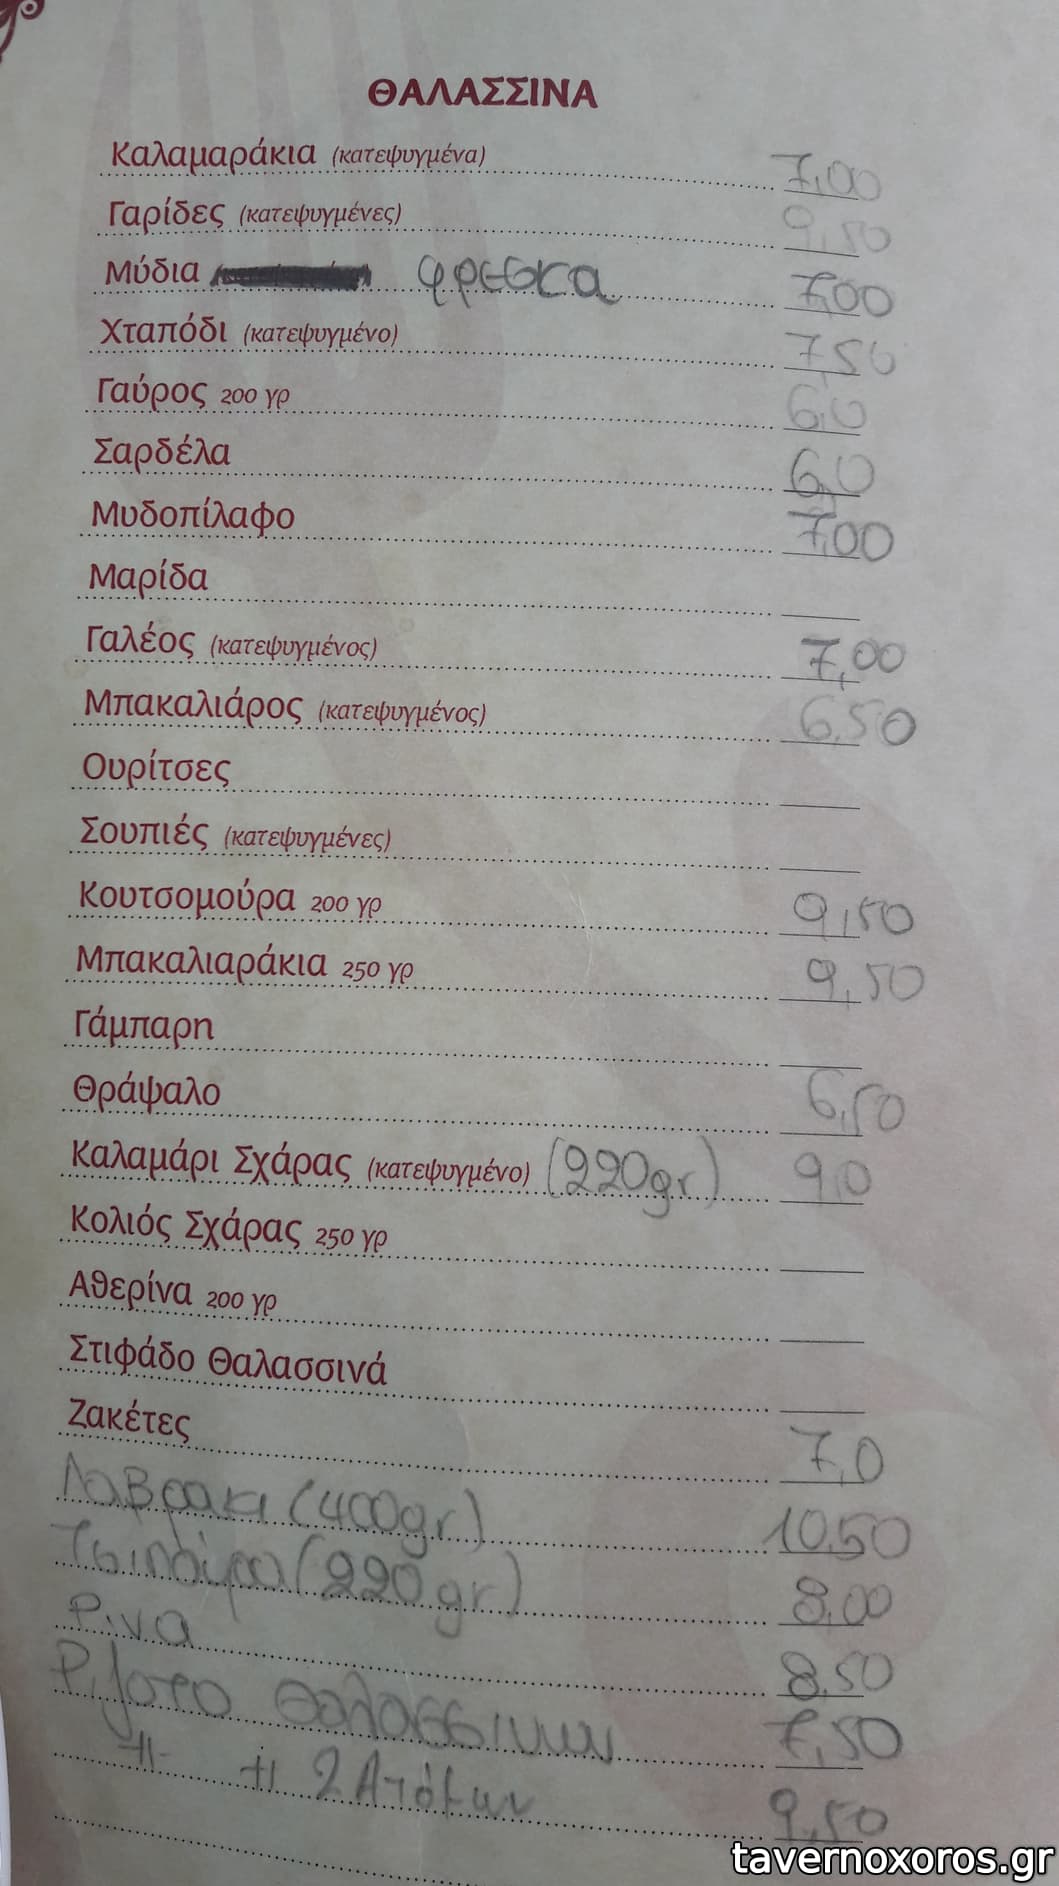 ΘΑΛΑΣΣΙΝΑ
Καλαμαράκια (κατεψυγμένα) 7,00
Γαρίδες (κατεψυγμένες) 9,50
Μύδια φρεσκα 7,00
Χταπόδι (κατεψυγμένο) 7,50
Γαύρος 200 γρ 6,0
Σαρδέλα 6,0
Μυδοπίλαφο 7,00
Μαρίδα
Γαλέος (κατεψυγμένος) 7,00
Μπακαλιάρος (κατεψυγμένος) 6,50
Ουρίτσες
Σουπιές (κατεψυγμένες)
Κουτσομούρα 200 γρ 9,50
Μπακαλιαράκια 250 γρ 9,50
Γάμπαρη
Θράψαλο 6,50
Καλαμάρι Σχάρας (κατεψυγμένο) (220gr) 9,0
Κολιός Σχάρας 250 γρ
Αθερίνα 200 γρ
Στιφάδο Θαλασσινά
Ζακέτες 7,0
Λαβρακι (400gr) 10,50
Τσιπούρα (220gr) 8,00
Ρινα 8,50
Ριζοτο Θαλασσινων 7,50
-11- -11 2 Ατόμων 9,50
tavernoxoros.gr